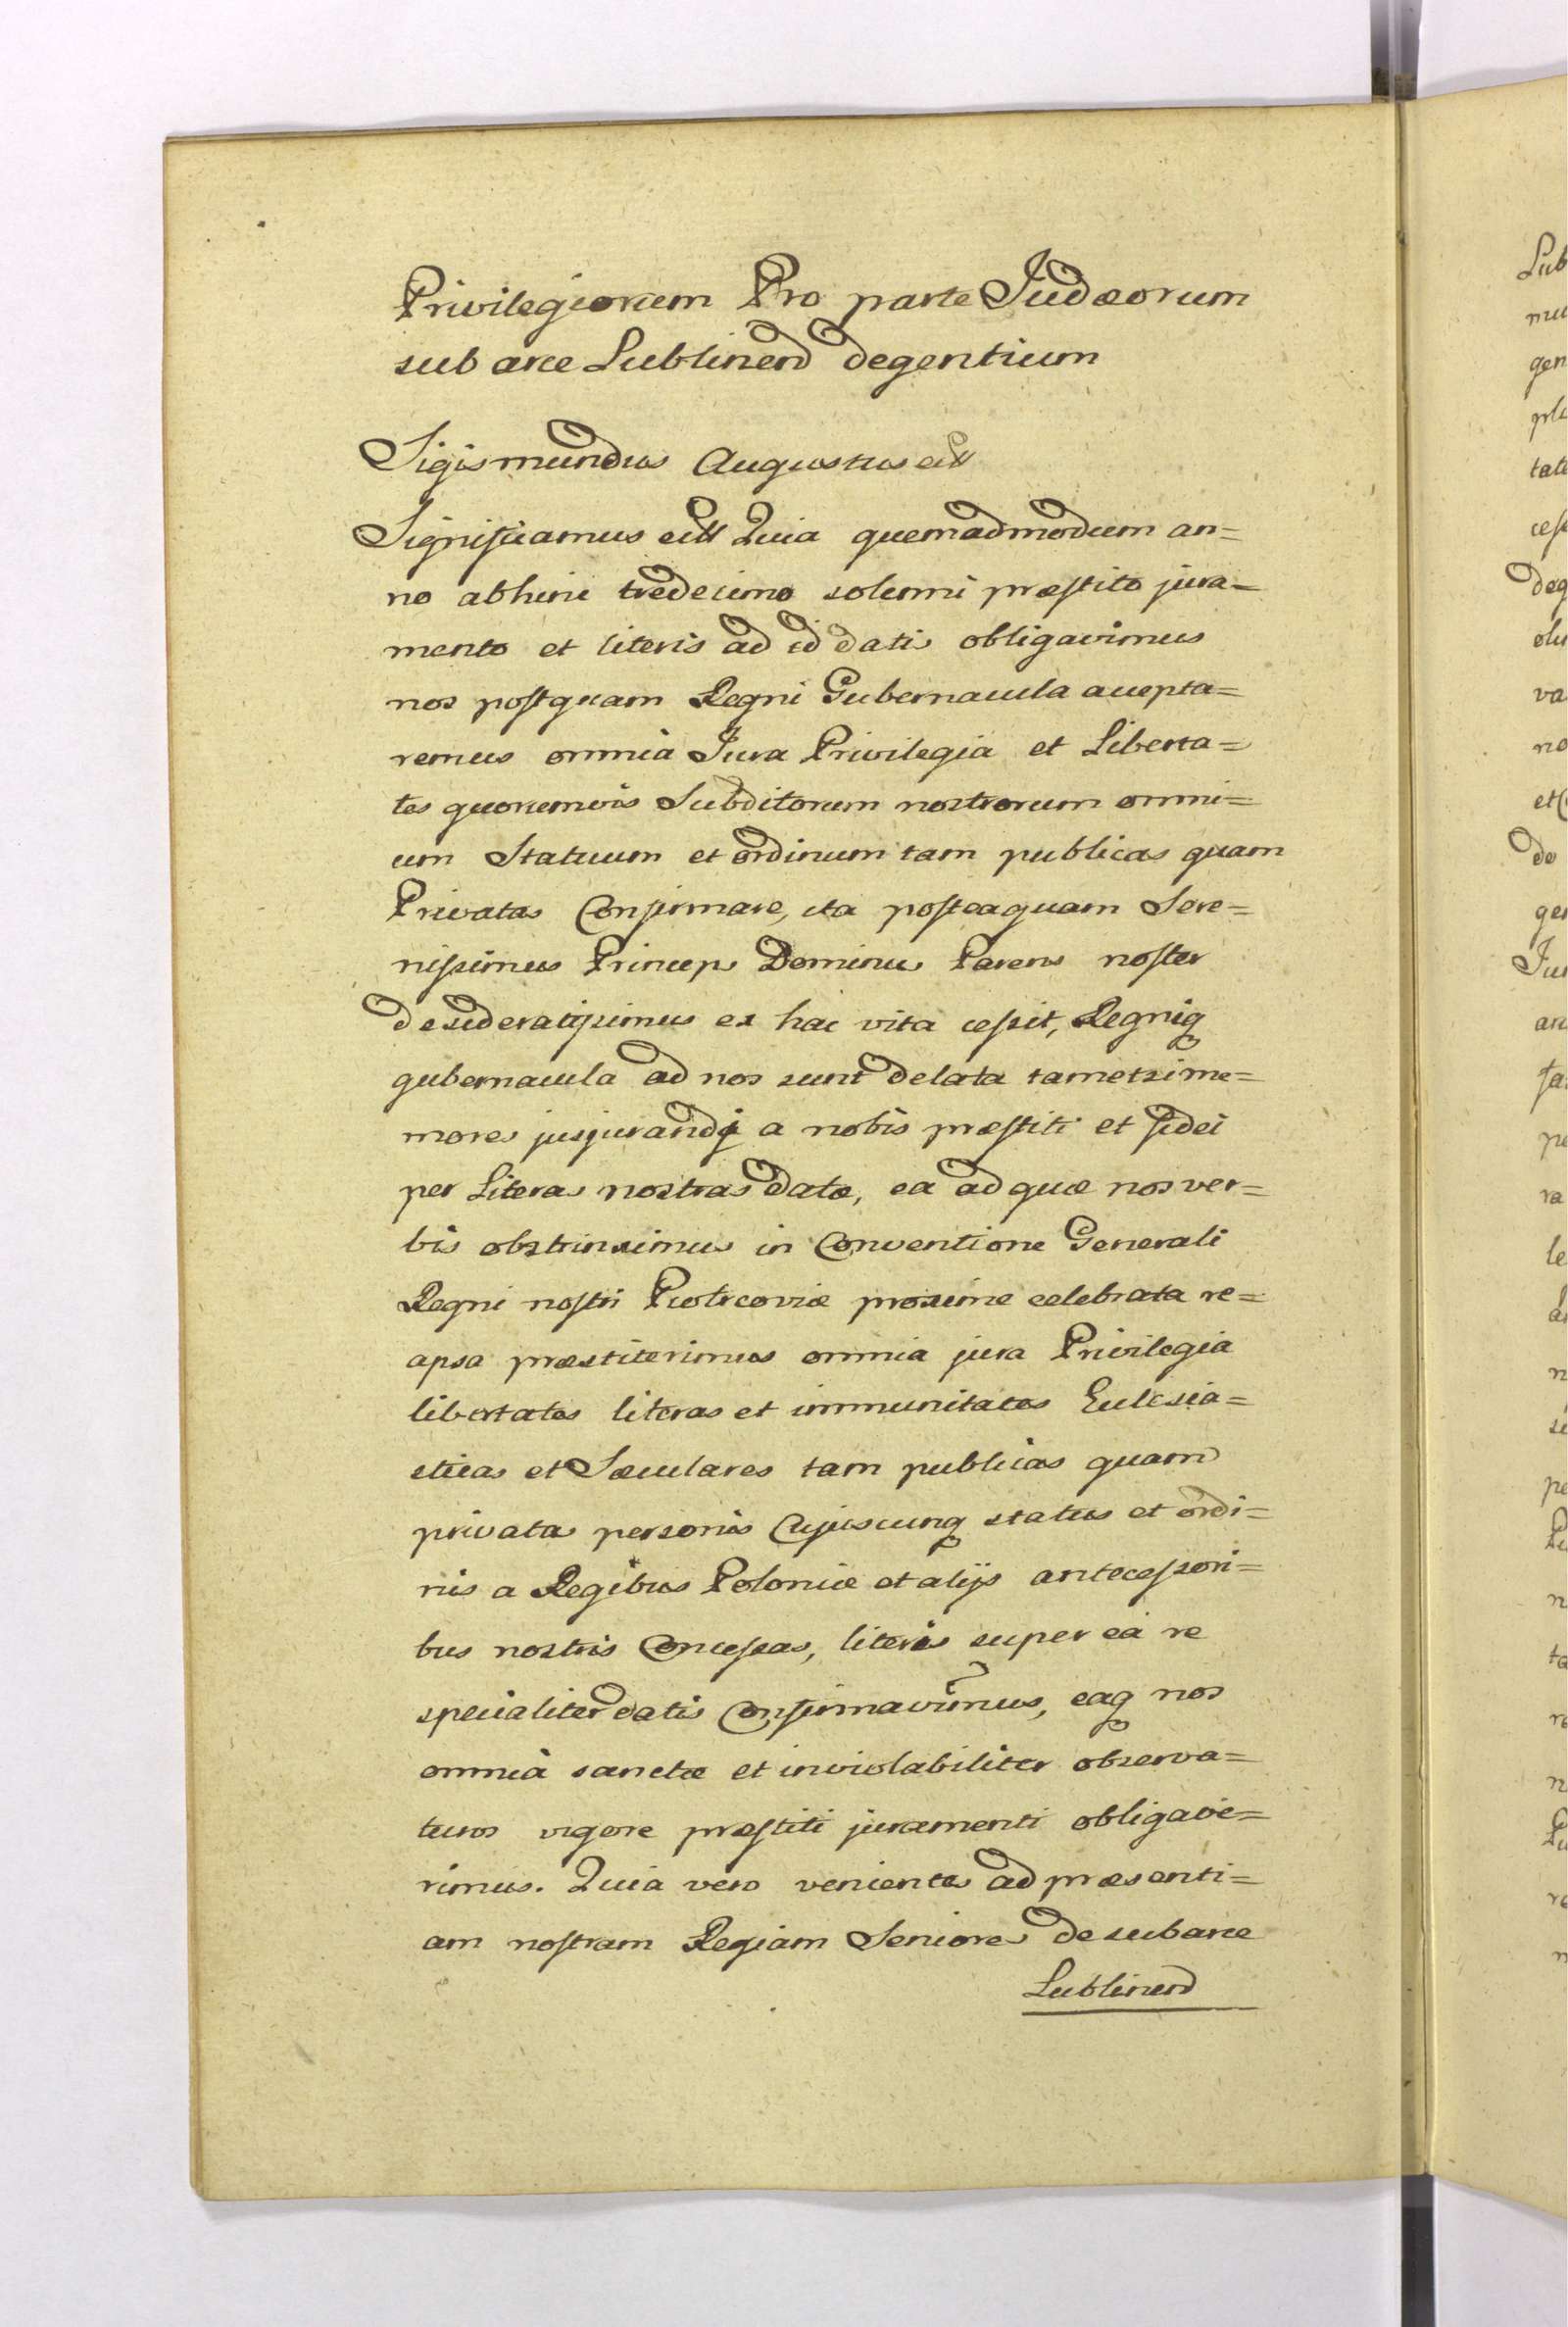 Privilegiorum Pro parte Judæorum
sub arce Lublinen degentium
Sigismundus Augustus etc
Significamus etc Quia quemadmodum an=
no abhinc tredecimo solenni præstito jura=
mento et literis ad id datis obligavimus
nos postquam Regni Gubernacula accepta=
remus omnia Jura Privilegia et Liberta=
tes quorumvis Subditorum nostrorum omni=
um Statuum et ordinum tam publicas quam
Privatas Confirmare, ita posteaquam Sere=
nissimus Princeps Dominus Parens noster
desideratissimus ex hac vita cessit, Regniq
gubernacula ad nos sunt delata tametsi me=
mores jusjurandi a nobis præstiti et fidei
per Literas nostras datæ, ea ad quæ nos ver=
bis obstrinximus in Conventione Generali
Regni nostri Piotrcoviæ proxime celebrata re=
apsa præstiterimus omnia jura Privilegia
libertates literas et immunitates Ecclesia=
sticas et Sæculares tam publicas quam
privatas personis Cujuscunq status et ordi=
nis a Regibus Poloniæ et alijs antecessori=
bus nostris Concessas, literis super ea re
specialiter datis Confirmavimus, eaq nos
omnia sancte et inviolabiliter observa=
turos vigore præstiti juramenti obligave=
rimus. Quia vero venientes ad præsenti=
am nostram Regiam Seniores de sub arce
Lublinen
Lub
mu
gen
pla
tate
cess
deg
olu
va
no
et C
de
gen
Jur
arc
fa
pe
ra
le
n
si
pe
n
ta
re
n
re